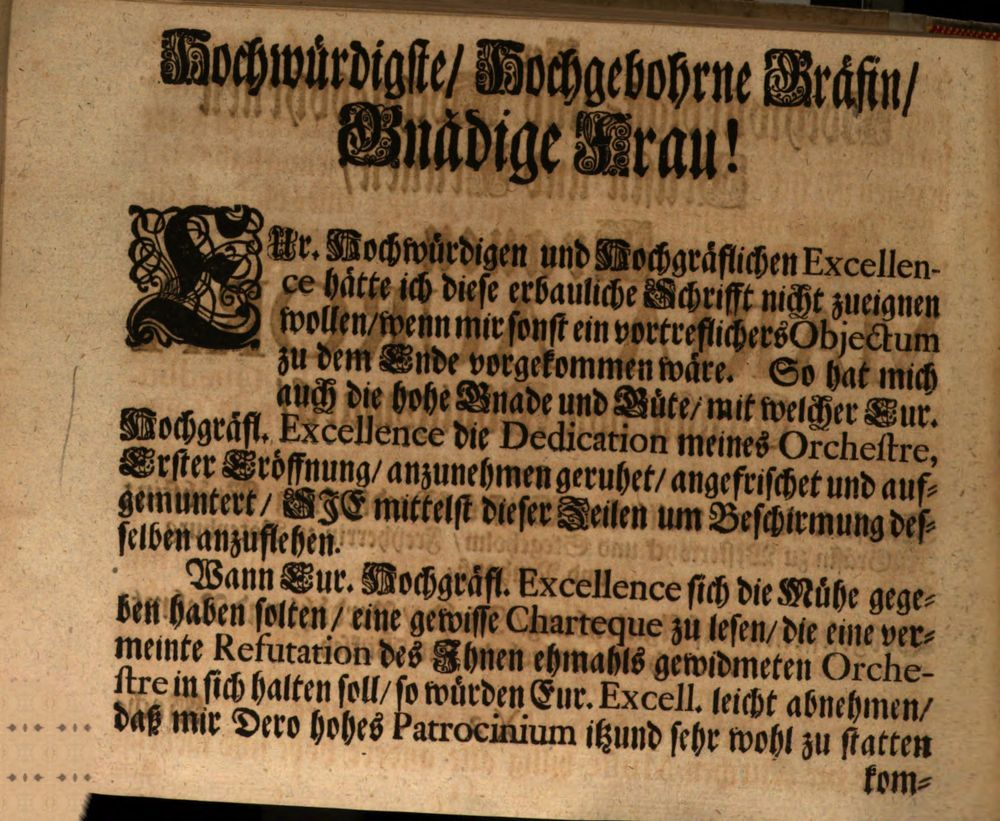 Hochwürdigste/ Hochgebohrne Gräfin/
Gnädige Frau!
EUr. Hochwürdigen und Hochgräflichen Excellen-
ce hätte ich diese erbauliche Schrifft nicht zueignen
wollen/ wenn mir sonst ein vortreflichers Objectum
zu dem Ende vorgekommen wäre. So hat mich
auch die hohe Gnade und Güte/ mit welcher Eur.
Hochgräfl. Excellence die Dedication meines Orchestre,
Erster Eröffnung/ anzunehmen geruhet/ angefrischet und auf-
gemuntert/ SIE mittelst dieser Zeilen um Beschirmung des-
selben anzuflehen.
Wann Eur. Hochgräfl. Excellence sich die Mühe gege-
ben haben solten/ eine gewisse Charteque zu lesen/ die eine ver-
meinte Refutation des Ihnen ehmahls gewidmeten Orche-
stre in sich halten soll/ so würden Eur. Excell. leicht abnehmen/
daß mir Dero hohes Patrocinium itzund sehr wohl zu statten
kom-